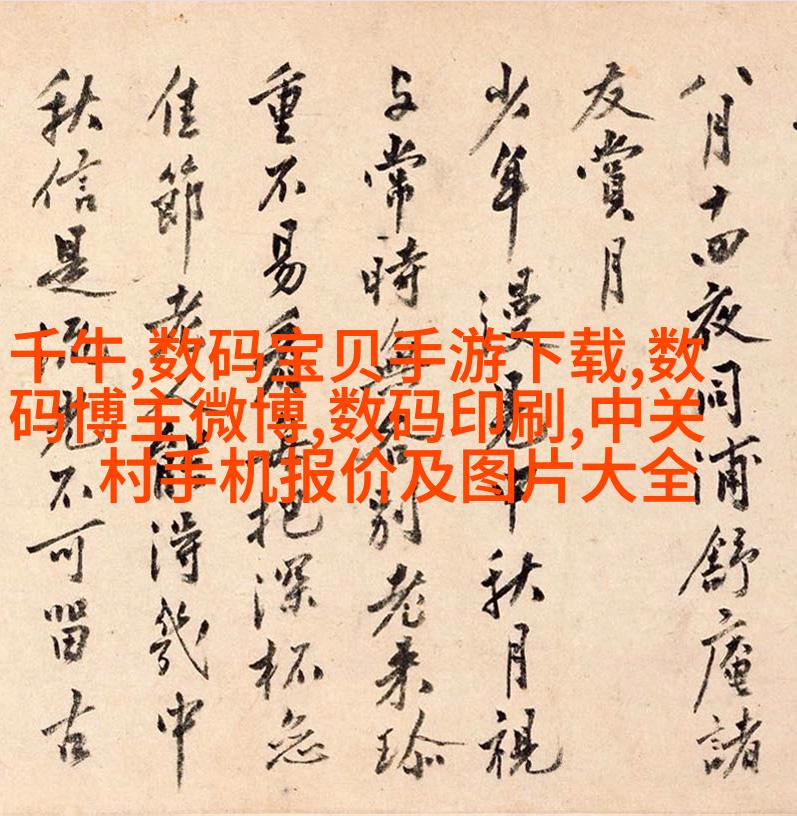 八月十四夜同浦舒庵諸
友賞月
少年漫見中秋月視
与常時無各別老来珎
重不易看把深杯恋
佳節老人能得幾中
秋信是流光不可留古
千牛,数码宝贝手游下载,数
码博主微博,数码印刷,中关
村手机报价及图片大全